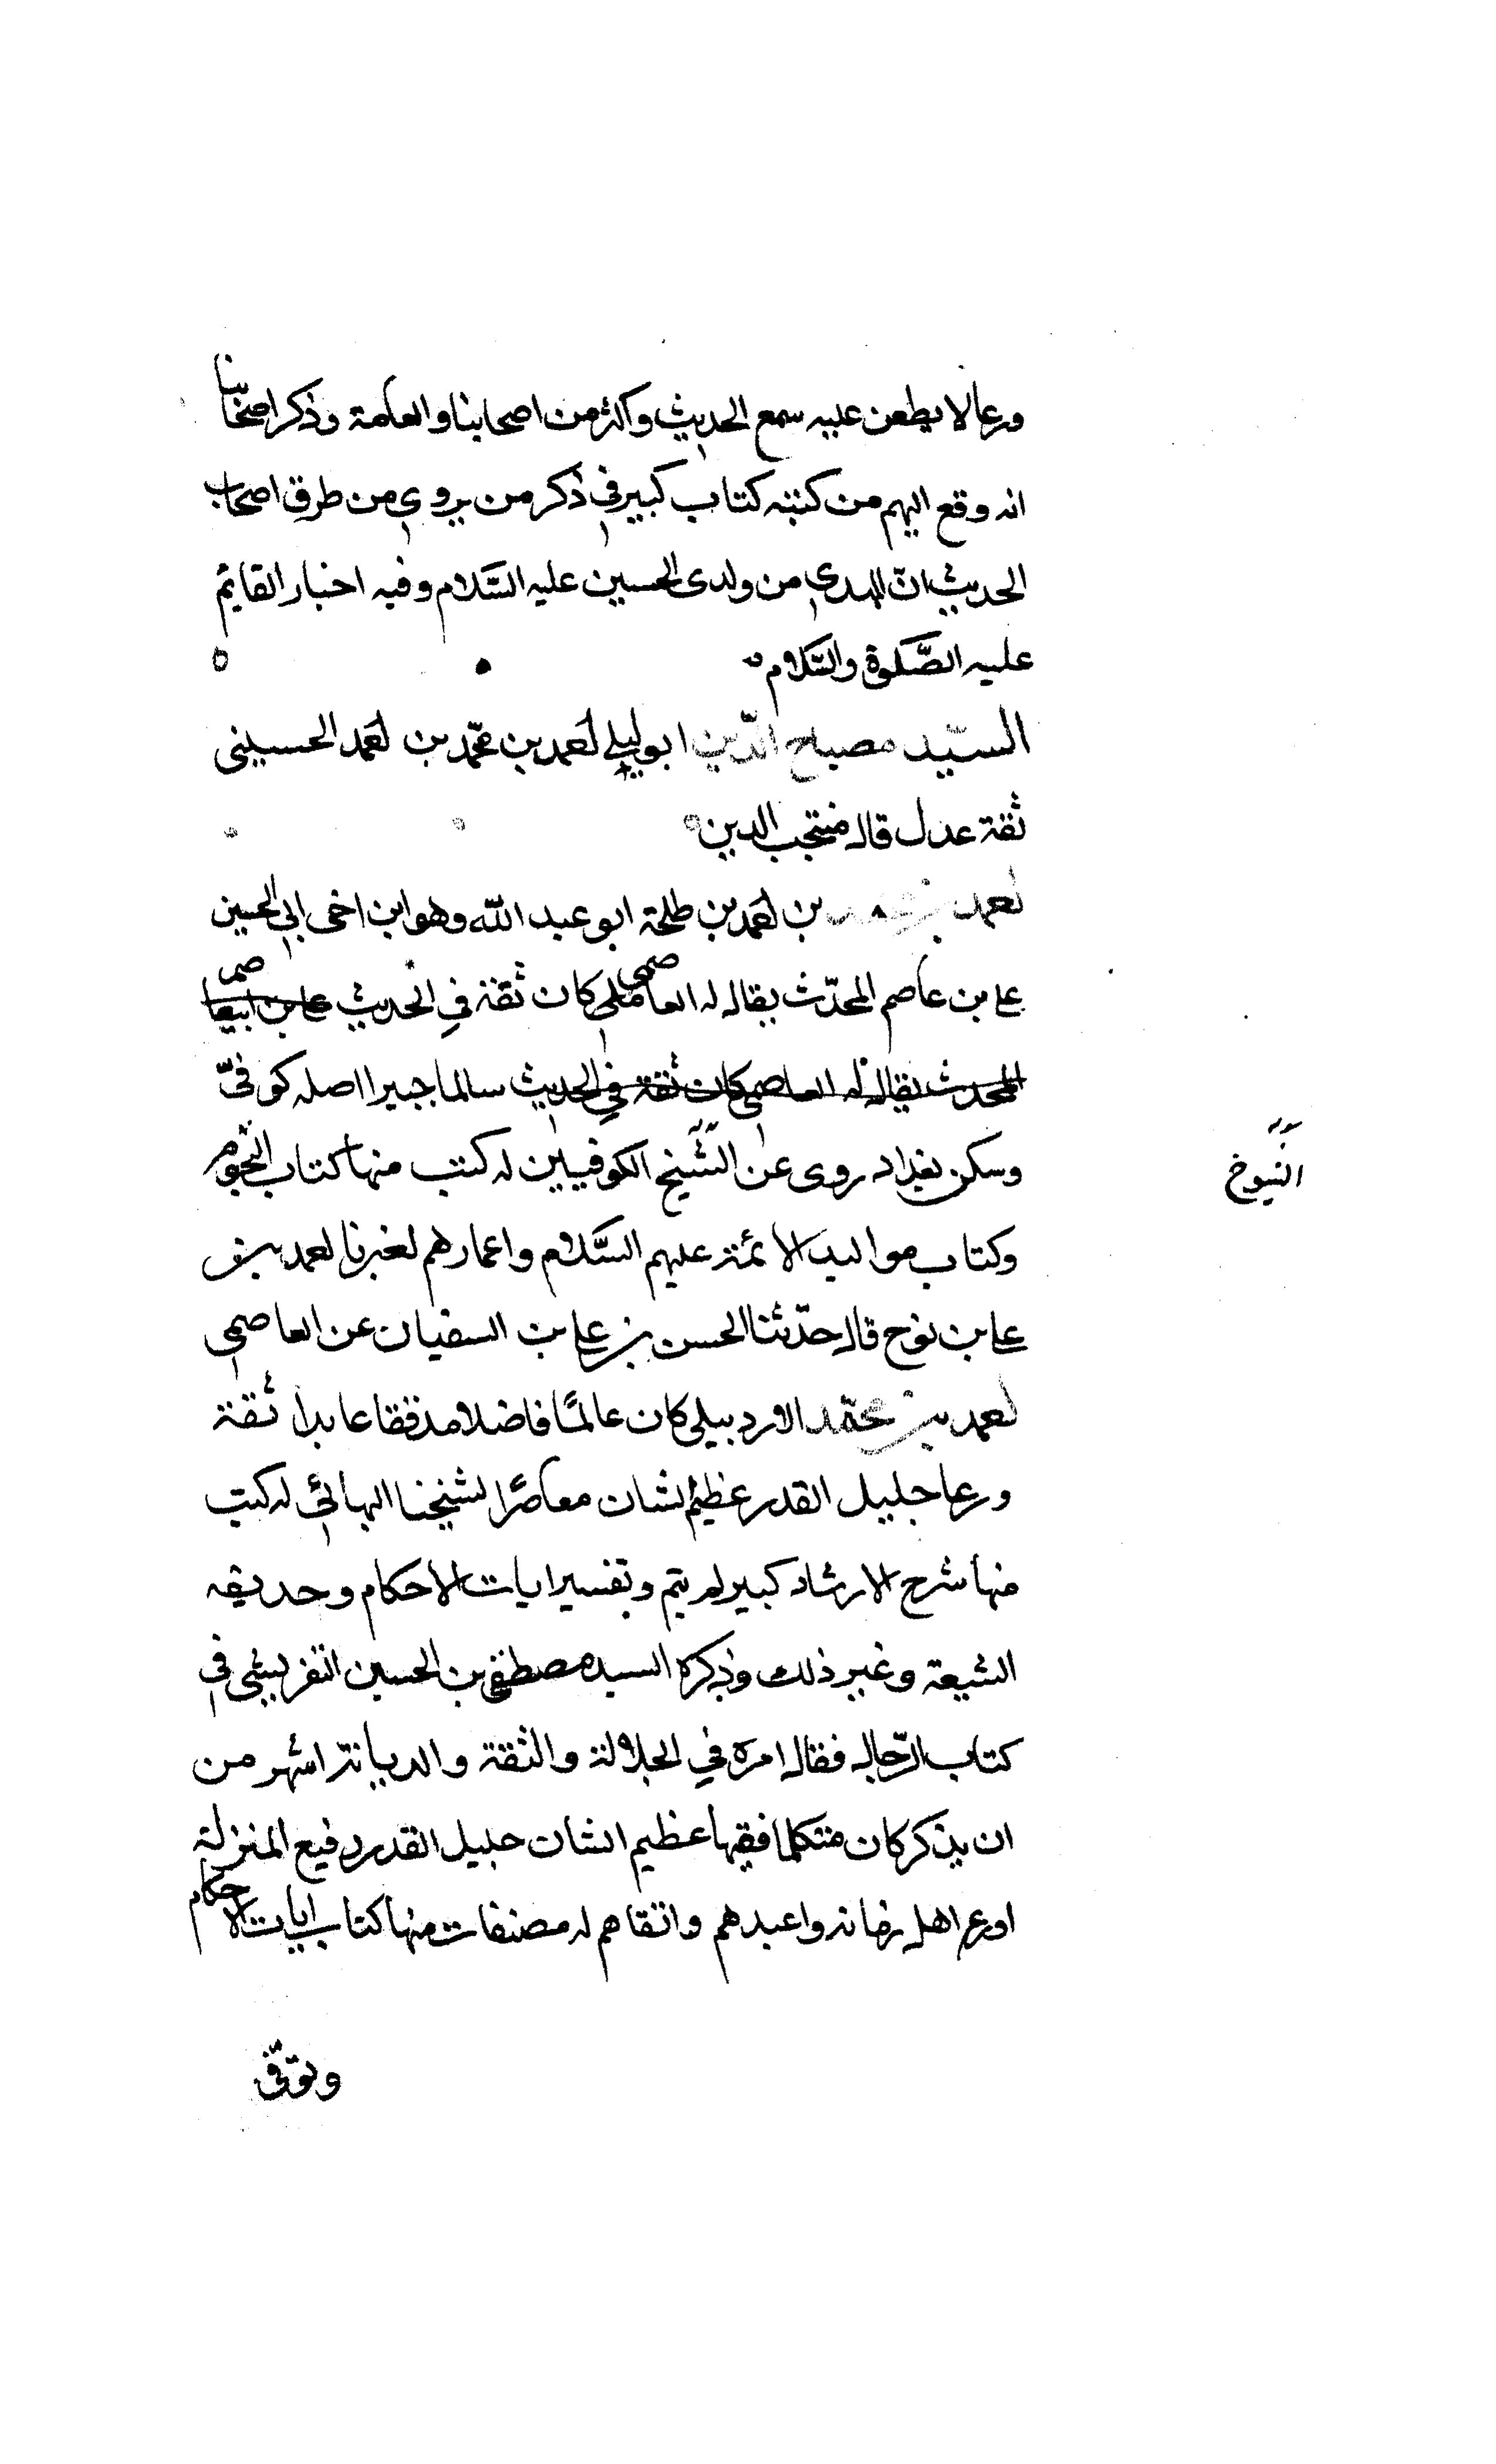 ورعا لا يطعن عليه سمع الحديث واكثر من اصحابنا والعامة وذكر اصحابنا
انه وقع اليهم من كتبه كتاب كبير في ذكر من يروي من طرق اصحاب
الحديث انّ المهدي من ولدى الحسين عليه السّلام وفيه اخبار القايم
عليه الصّلوة والسّلام
السيّد مصباح الدّين ابو ليلى احمد بن محمّد بن احمد الحسيني
ثقة عدل قاله منتجب الدين
احمد بن محمد بن احمد بن طلحة ابو عبد الله وهو ابن اخى ابى الحسين
على بن عاصم المحدّث يقال له العاصمي كان ثقة في الحديث على بن عاصم
المحدث يقال له العاصمى كان ثقة في الحديث سالما جيرا اصله كوفىّ
وسكن بغداد روى عن الشّيخ الكوفيين له كتب منها كتاب النجوم
الشيوخ
وكتاب مواليد الائمة عليهم السّلام واعمارهم اخبرنا احمد بن
على بن نوح قال حدّثنا الحسن بن على بن السفيان عن العاصمي
احمد بن محمّد الاردبيلى كان عالمًا فاضلا مدققا عابدا ثقة
ورعا جليل القدر عظيم الشان معاصرًا لشيخنا البهائي له كتب
منها شرح الارشاد كبير لم يتم وتفسير ايات الاحكام وحديقه
الشيعة وغير ذلك وذكره السيد مصطفى بن الحسين التفريشى في
كتاب الرّجال فقال امره في الجلالة والثقة والديانة اشهر من
ان يذكر كان متكلما فقيها عظيم الشان جليل القدر رفيع المنزلة
اورع اهل زمانه واعبدهم واتقاهم له مصنفات منها كتاب ايات الاحكام
وتوفّى